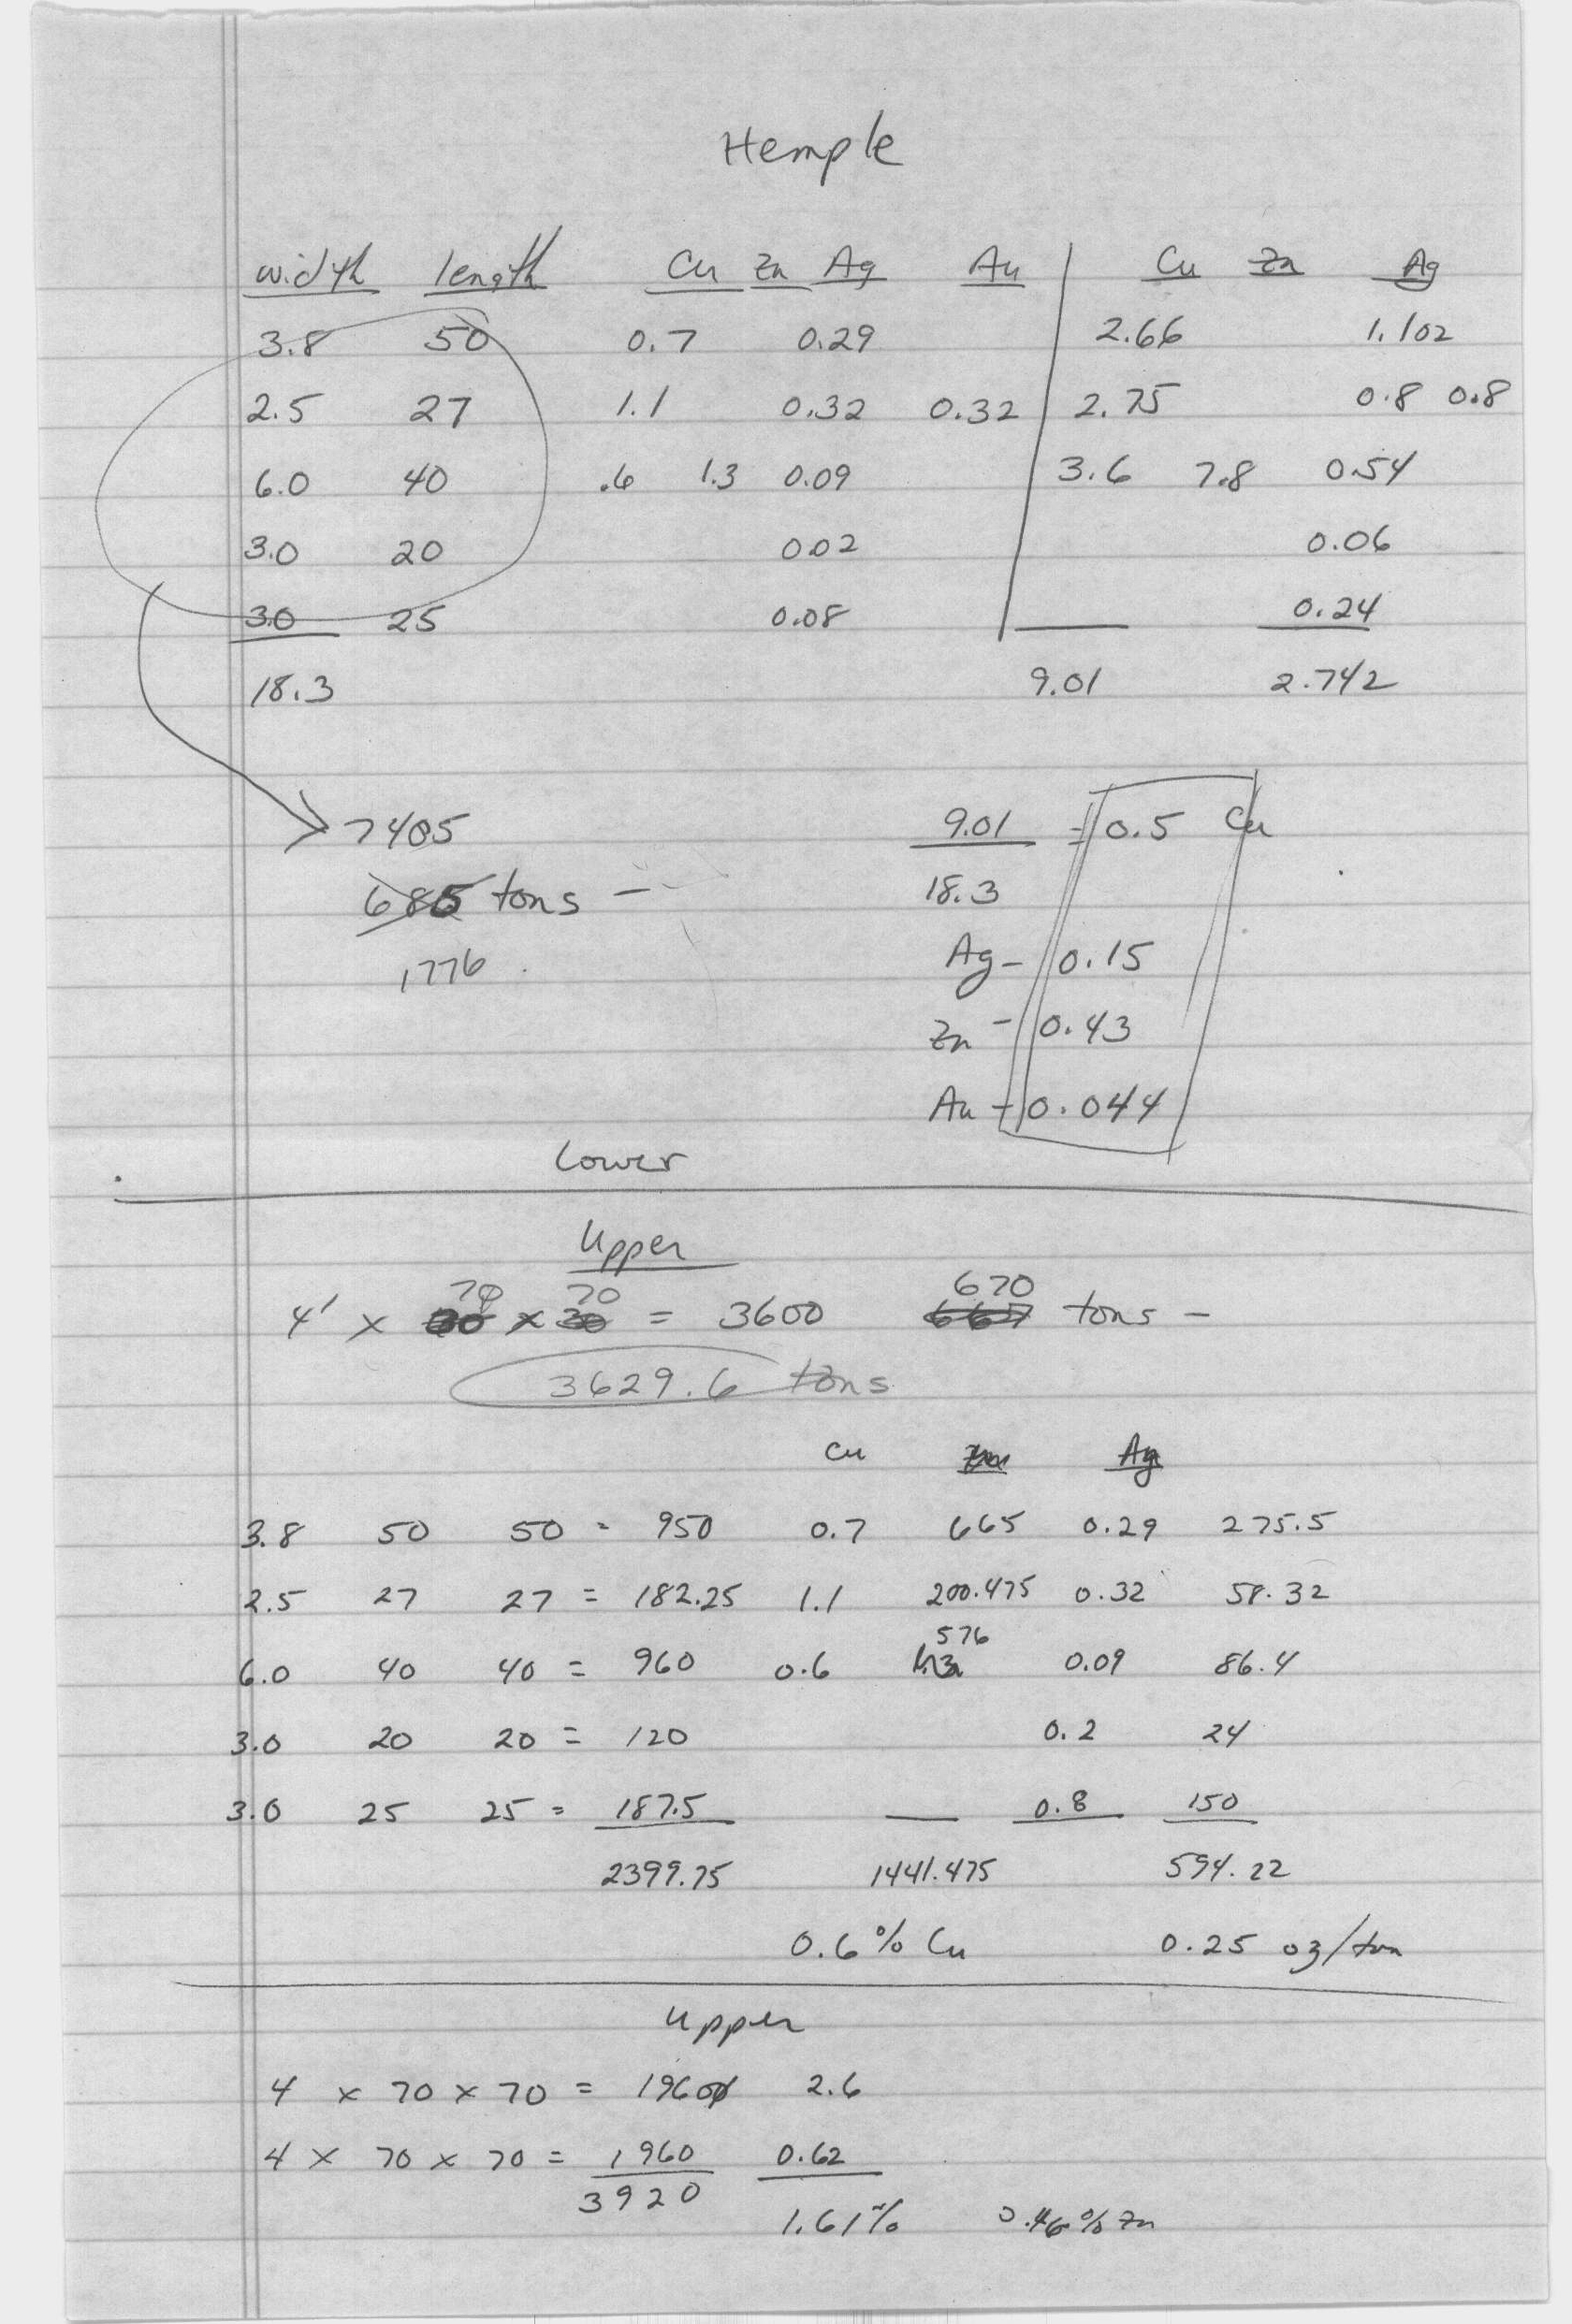 Hemple
width length Cu Zn Ag Au Cu Zn Ag
3.8 50 0.7 0.29 2.66 1.102
2.5 27 1.1 0.32 0.32 2.75 0.8 0.8
6.0 40 .6 1.3 0.09 3.6 7.8 0.54
3.0 20 0.02 0.06
3.0 25 0.08 0.24
18.3 9.01 2.742
7405 9.01 = 0.5 Cu
685 tons - 18.3
1776
Ag - 0.15
Zn - 0.43
Au - 0.044
Lower
Upper
70 70 670
4' x 30 x 30 = 3600 667 tons -
3629.6 tons
Cu Zn Ag
3.8 50 50 = 950 0.7 665 0.29 275.5
2.5 27 27 = 182.25 1.1 200.475 0.32 58.32
576
6.0 40 40 = 960 0.6 0.09 86.4
3.0 20 20 = 120 0.2 24
3.0 25 25 = 187.5 0.8 150
2399.75 1441.475 594.22
0.6% Cu 0.25 oz/ton
Upper
4 x 70 x 70 = 19600 2.6
4 x 70 x 70 = 1960 0.62
3920
1.61% 0.46% Zn